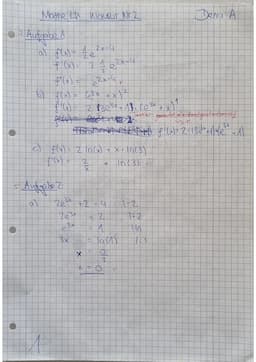 Mathe LK Klausur Nr.2 Demi A
Aufgabe 1
a) f(x) = 1/2 e^2x-4
f'(x) = 2 · 1/2 e^2x-4
f'(x) = e^2x-4
b) f(x) = (e^3x + x)²
f'(x) = 2 · (3e^3x + 1) · (e^3x + x)¹
c) f(x) = 2 ln(x) + x · ln(3)
f'(x) = 2/x + ln(3)
Aufgabe 2
a) 2e^3x + 2 = 4 |-2
2e^3x = 2 |÷2
e^3x = 1 |ln
3x = ln(1) |:3
x = 0/3
x = 0
1